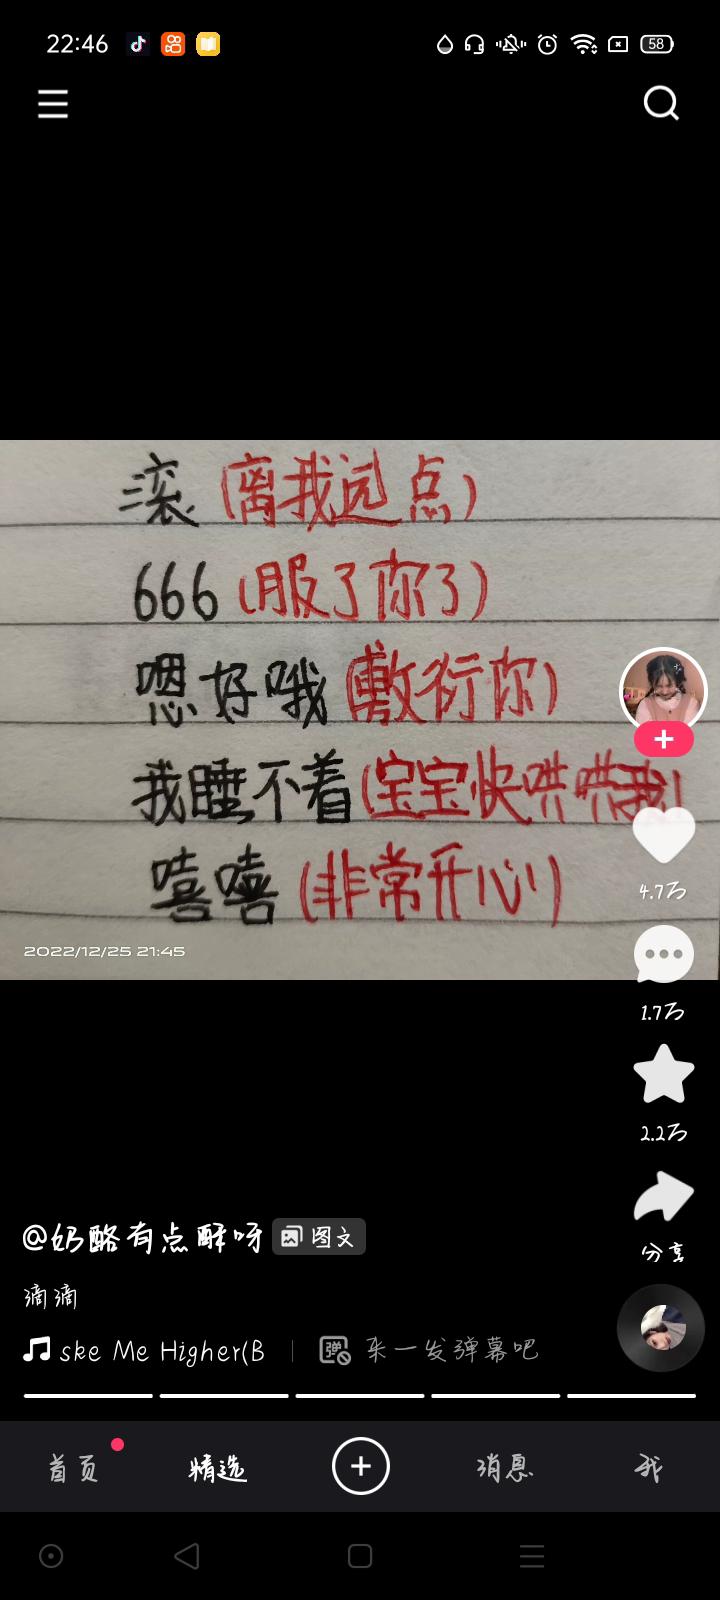 22:46
58
滚(离我远点)
666(服了你了)
嗯好哦(敷衍你)
我睡不着(宝宝快哄哄我)
嘻嘻(非常开心)
2022/12/25 21:45
4.7万
1.7万
2.2万
分享
@奶酪有点酥呀 图文
滴滴
ske Me Higher(B
弹 来一发弹幕吧
首页 精选 消息 我